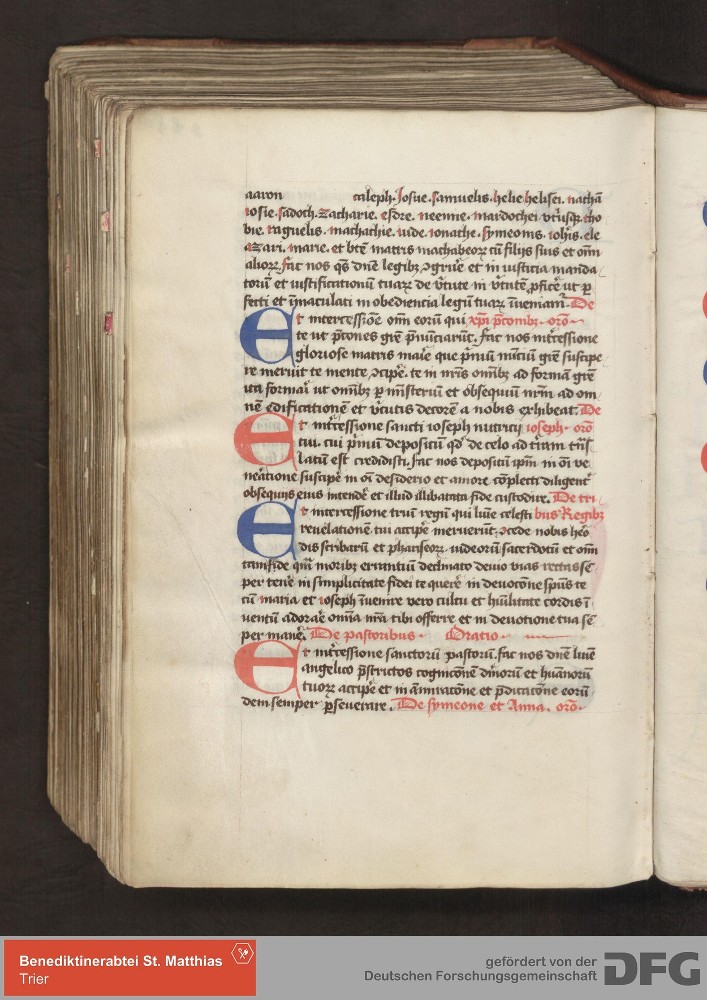 aaron caleph. Josue. samuelis. helie helisei. nathā
iosie. sadoch. zacharie. esdre. neemie. mardochei. vtriusqꝫ tho
bie. raguelis. machachie. iude. ionathe. symeonis. iohis. ele
azari. marie. et btē matris machabeorꝝ cū filijs suis et om̄
aliorꝝ. fac nos qs dn̄e legibꝫ ꝯgrue et in iusticia manda
torū et iustificationū tuarꝝ de v̄tute in v̄tutē ꝓfic̄e ut ꝑ
fecti et īmaculati in obediencia legū tuarꝝ īueniam̄. De
Et intercessiōe om̄ eorū qui xpi p̄conibꝫ. orō
te ut p̄cones grē p̄nūciarūt. fac nos int̄cessione
gloriose matris marie que p̄mū nūciū grē suscipe
re meruit te mente ꝯcipe. te in nr̄is om̄ibꝫ ad formā grē
vtā formari ut om̄ibꝫ ꝑ mīsteriū et obsequiū nr̄m ad om
nē edificationē et v̄tutis decorē a nobis exhibeat. De
Et int̄cessione sancti ioseph nutricij ioseph. orō
tui. cui p̄mū depositū qd de celo ad t̄ram trās
latū est credidisti. fac nos depositū ipm̄ in oī ve
neratione suscipe in oī desiderio et amore cōplecti diligent̄
obsequijs eius intendē et illud illibatata fide custodire. De tri
Et intercessione triū regū qui luīe celesti bus Regibꝫ
reuelationē tui accipe meruerūt. ꝯcede nobis hēo
dis scribarū et phariseorꝝ iudeorū sacerdotū et om̄
tam fide qm̄ moribꝫ errantiū declinato deuio vias rectas sē
per tene in simplicitate fidei te querē in deuocōne spūs te
cū maria et ioseph īuenire vero cultu et hūilitate cordis ī
uentū adorare om̄ia nr̄a tibi offerre et in deuotione tua sē
per manē. De pastoribus. Oratio.
Et int̄cessione sanctorū pastorū. fac nos dn̄e luīe
angelico p̄strictos cognicōnē diuinorū et hūanorū
tuorꝝ accipe et in āmiracōne et p̄dicacōne eorū
dem semper ꝑseuerare. De symeone et Anna. orō.
Benediktinerabtei St. Matthias
Trier
gefördert von der
Deutschen Forschungsgemeinschaft
DFG